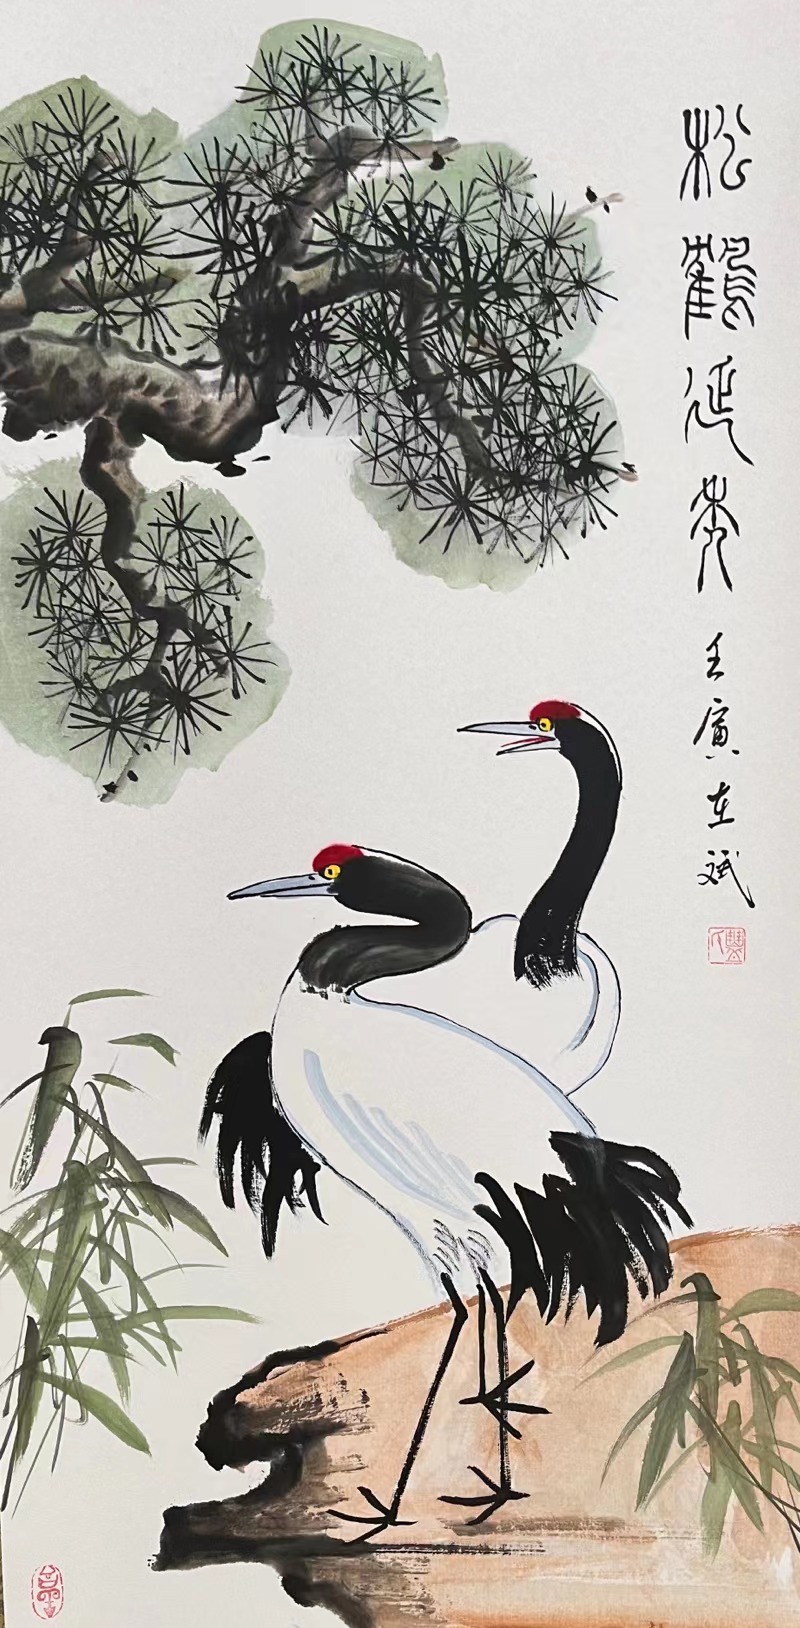 松鶴延年壬寅在斌